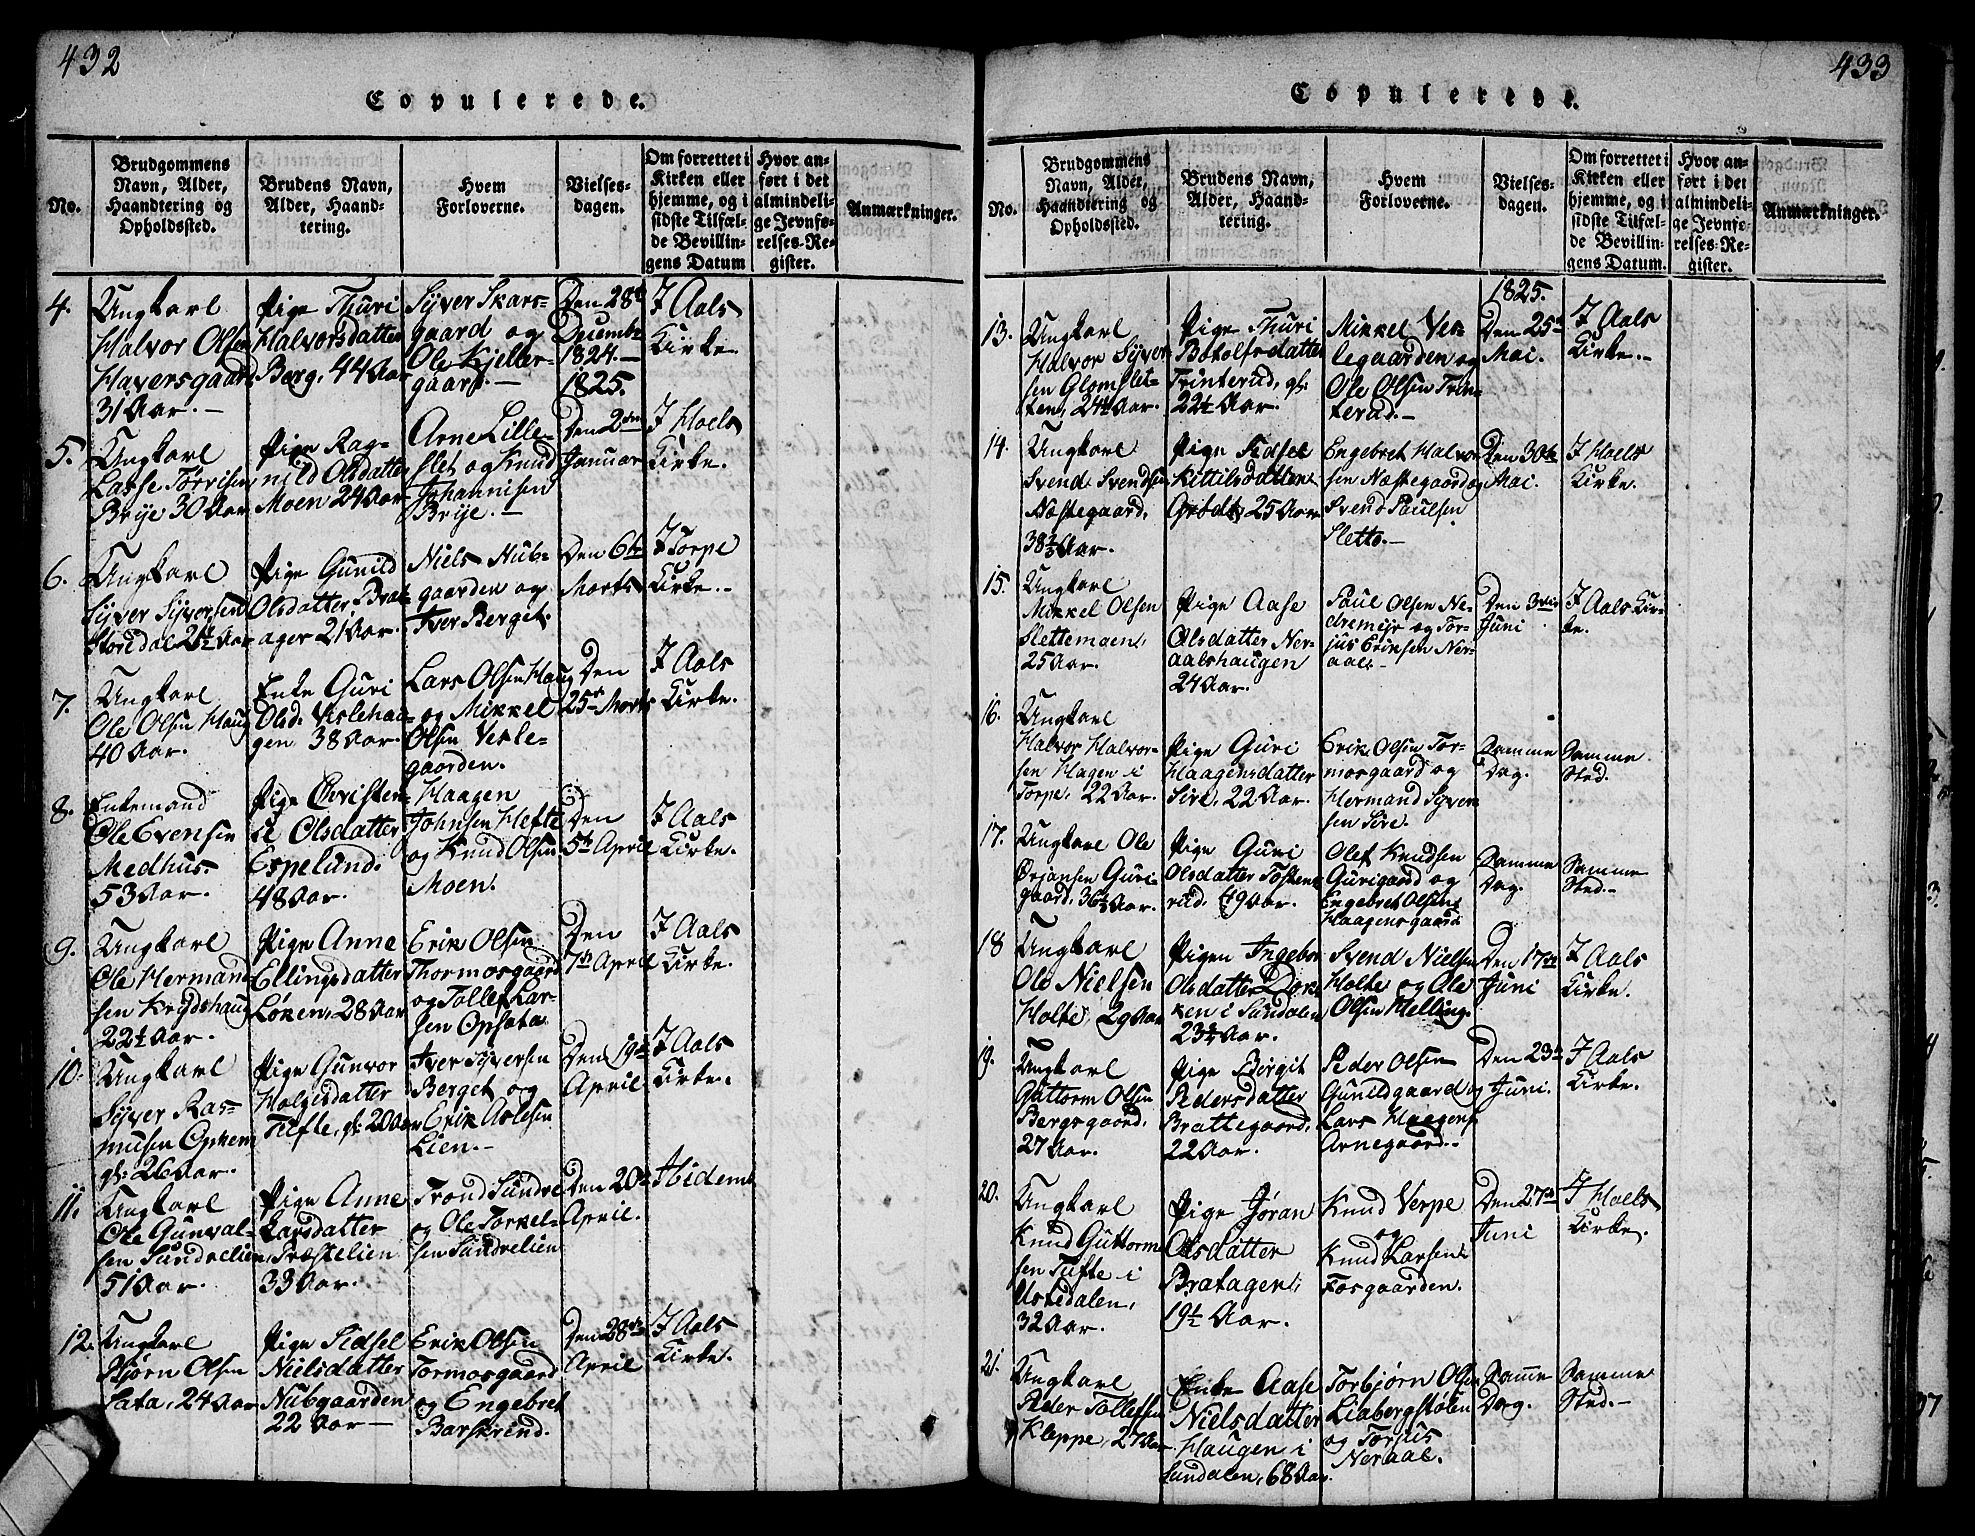 432
Copulerede.
No.
Brudgommens
Navn, Alder,
Haandtering og
Opholdssted.
Brudens Navn,
Alder, Haand-
tering.
Hvem
Forloverne.
Vielses-
dagen.
Om forrettet i
Kirken eller
hjemme, og i
sidste Tilfæl-
de Bevillin-
gens Datum
Hvor an-
ført i det
almindeli-
ge Jevnfø-
relses-Re-
gister.
Anmærkninger.
4.
Ungkarl
Halvor Olsen
Haversgaard
31 Aar.-
Pige Thuri
Halvorsdatter
Berg, 44 Aar
Syver Skars-
gaard og
Ole Kjeller-
gaard.-
Den 28de
Decembr
1824.-
I Aals
Kirke.
1825.
5.
Ungkarl
Lasse Torrisen
Brye 30 Aar
Pige Rag-
nild Olsdatter
Moen 24 Aar
Arne Lille-
slet og Knud
Johannisen
Brye.-
Den 2den
Januar
I Hoels
Kirke.
6.
Ungkarl
Syver Syversen
Storedal 21½ Aar
Pige Gunild
Olsdatter Brat-
ager 21 Aar.
Niels Nub-
gaarden og
Iver Berget.
Den 6te
Marts
I Torpe
Kirke.-
7.
Ungkarl
Ole Olsen Haug
40 Aar.
Enke Guri
Olsd. Veslehau-
gen 38 Aar.
Lars Olsen Haug
og Mikkel
Olsen Vesle-
gaarden.
Den
25de Marts
I Aals
Kirke.
8.
Enkemand
Ole Evensen
Medhus.
53 Aar.
Pige Christen-
ce Olsdatter
Espelund.
48 Aar.
Haagen
Johnsen Hefte
og Knud Olsen
Moen.
Den
5te April
I Aals
Kirke.
9.
Ungkarl
Ole Herman-
sen Krydshaug
22½ Aar.
Pige Anne
Ellingsdatter
Løken, 28 Aar
Erik Olsen
Thormosgaard
og Tollef Lar-
sen Opsata
Den
7de April
I Aals
Kirke.
10.
Ungkarl
Syver Ras-
musen Ophem
gl: 26 Aar.
Pige Gunvor
Holgisdatter
Tufte, gl: 20 Aar
Iver Syversen
Berget og
Erik Aslesen
Lien.-
Den 19de
April
I Aals
Kirke.
11.
Ungkarl
Ole Gunval-
sen Sundrelien
51 Aar.
Pige Anne
Larsdatter
Præstelien
33 Aar.
Trond Sundre
og Ole Torkel-
sen Sundrelien
Den 20de
April.
Ibidem
12.
Ungkarl
Bjørn Olsen
Sata, 24 Aar
Pige Sidsel
Nielsdatter
Nubgaarden
22 Aar-
Erik Olsen
Tormosgaard
og Engebret
Barskrind.
Den 28de
April
I Aals
Kirke.
433
Copulerede.
No.
Brudgommens
Navn, Alder,
Haandtering og
Opholdssted.
Brudens Navn,
Alder, Haand-
tering.
Hvem
Forloverne.
Vielses-
dagen.
Om forrettet i
Kirken eller
hjemme, og i
sidste Tilfæl-
de Bevillin-
gens Datum.
Hvor an-
ført i det
almindeli-
ge Jevnfø-
relses-Re-
gister.
Anmærkninger.
1825.
13.
Ungkarl
Halvor Syver-
sen Glomslet-
ten, 24½ Aar.
Pige Thuri
Botolfsdatter
Trinterud, gl:
22½ Aar.
Mikkel Ves-
legaarden og
Ole Olsen Trin-
terud.-
Den 25de
Mai.
I Aals
Kirke.-
14.
Ungkarl
Svend Svendsen
Næstegaard,
38⅔ Aar.
Pige Sidsel
Kittilsdatter
Grødt, 25 Aar
Engebret Halvor-
sen Næstegaard og
Svend Paulsen
Sletto.-
Den 30te
Mai.
I Hoels
Kirke.
15.
Ungkarl
Mikkel Olsen
Slettemoen,
25 Aar.
Pige Aase
Olsdatter Ner-
aalshaugen
24 Aar.
Paul Olsen Ne-
dremejr og Tor-
jus Eriksen Ner-
aal.-
Den 3die
Juni
I Aals Kir-
ke.
16.
Ungkarl
Halvor Halvor-
sen Hagen i
Torpe, 22 Aar.
Pige Guri
Haagensdatter
Sire, 22 Aar.
Erik Olsen Tor-
mosgaard og
Hermand Syver-
sen Sire.
Samme
Dag.
Samme
Sted.
17.
Ungkarl Ole
Ørjansen Guri-
gaard, 36½ Aar.
Pige Guri
Olsdatter Tosten-
rud, 49 Aar.
Olef Knudsen
Gurigaard og
Engebret Olsen
Haagensgaard
Samme
Dag.
Samme
Sted.-
18
Ungkarl
Ole Nielsen
Holte, 29 Aar
Pigen Ingebor
Olsdatter Dok-
ken i Sundalen
23¾ Aar.
Svend Nielsen
Holte og Ole
Olsen Helling.
Den 17de
Juni
I Aals
Kirke.
19.
Ungkarl
Guttorm Olsen
Bergsgaard,
27 Aar.
Pige Birgit
Pedersdatter
Brattegaard,
22 Aar.
Peder Olsen
Gunildgaard og
Lars Haagens
Arnegaard.
Den 23de
Juni.
I Aals
Kirke.
20.
Ungkarl
Knud Guttorm-
sen Tufte i
Ustedalen,
32 Aar.
Pige Jøran
Olsdatter
Bratagen,
19½ Aar.
Knud Verpe
og
Knud Larsen
Fosgaarden.
Den 27de
Juni
I Hoels
Kirke.
21.
Ungkarl
Peder Tollefsen
Kloppe, 27 Aar
Enke Aase
Nielsdatter
Haugen i
Sundalen, 68 Aar.
Torbjørn Olsen
Liabergstølen
og Torjus
Neraal.
Samme
Dag.
Samme
Sted.-